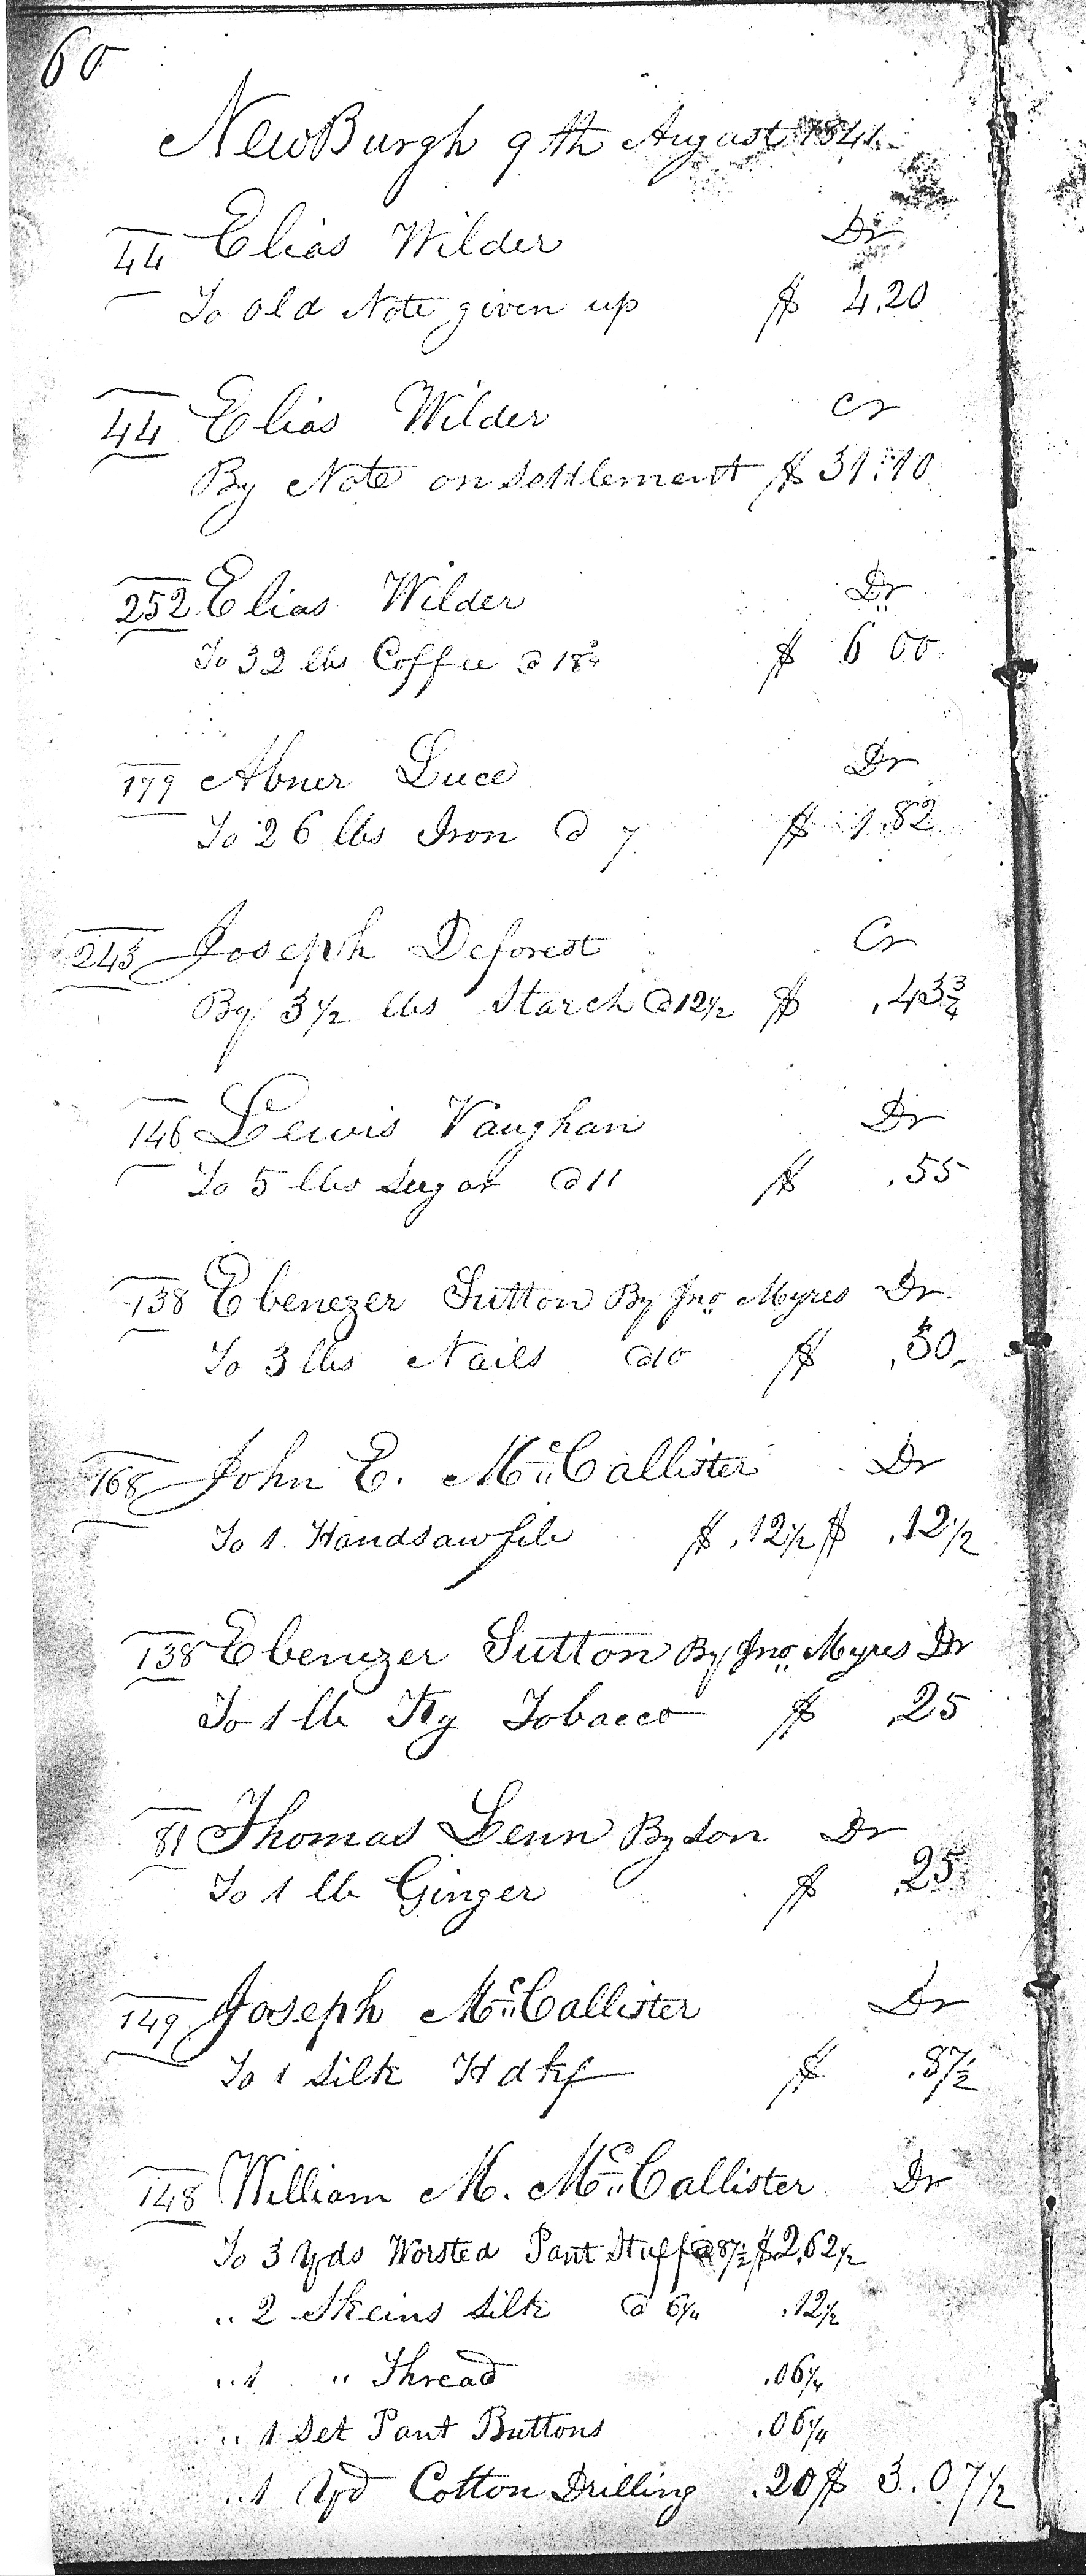 60
NewBurgh 9th August 1841
44 Elias Wilder Dr
To Old Note given up $ 4.20
44 Elias Wilder Cr
By Note on Settlement $ 31.10
252 Elias Wilder Dr
To 32 lbs Coffee @ 18¾ $ 6 00
179 Abner Luce Dr
To 26 lbs Iron @ 7 $ 1.82
243 Joseph Deforest Cr
By 3½ lbs Starch @ 12½ $ .43¾
146 Lewis Vaughan Dr
To 5 lbs Sugar @ 11 $ .55
138 Ebenezer Sutton By Jno. Myres Dr
To 3 lbs Nails @ 10 $ .30
168 John E. McCallister Dr
To 1 Handsaw file $ .12½ $ .12½
138 Ebenezer Sutton By Jno. Myres Dr
To 1 lb Ky Tobacco $ .25
81 Thomas Lenn By Son Dr
To 1 lb Ginger $ .25
149 Joseph McCallister Dr
To 1 Silk Hdkf $ .87½
148 William M. McCallister Dr
To 3 Yds Worsted Pant Stuff @ 87½ $ 2.62½
" 2 Skeins Silk @ 6¼ .12½
" 1 " Thread .06¼
" 1 Set Pant Buttons .06¼
" 1 Yd Cotton Drilling .20 $ 3.07½